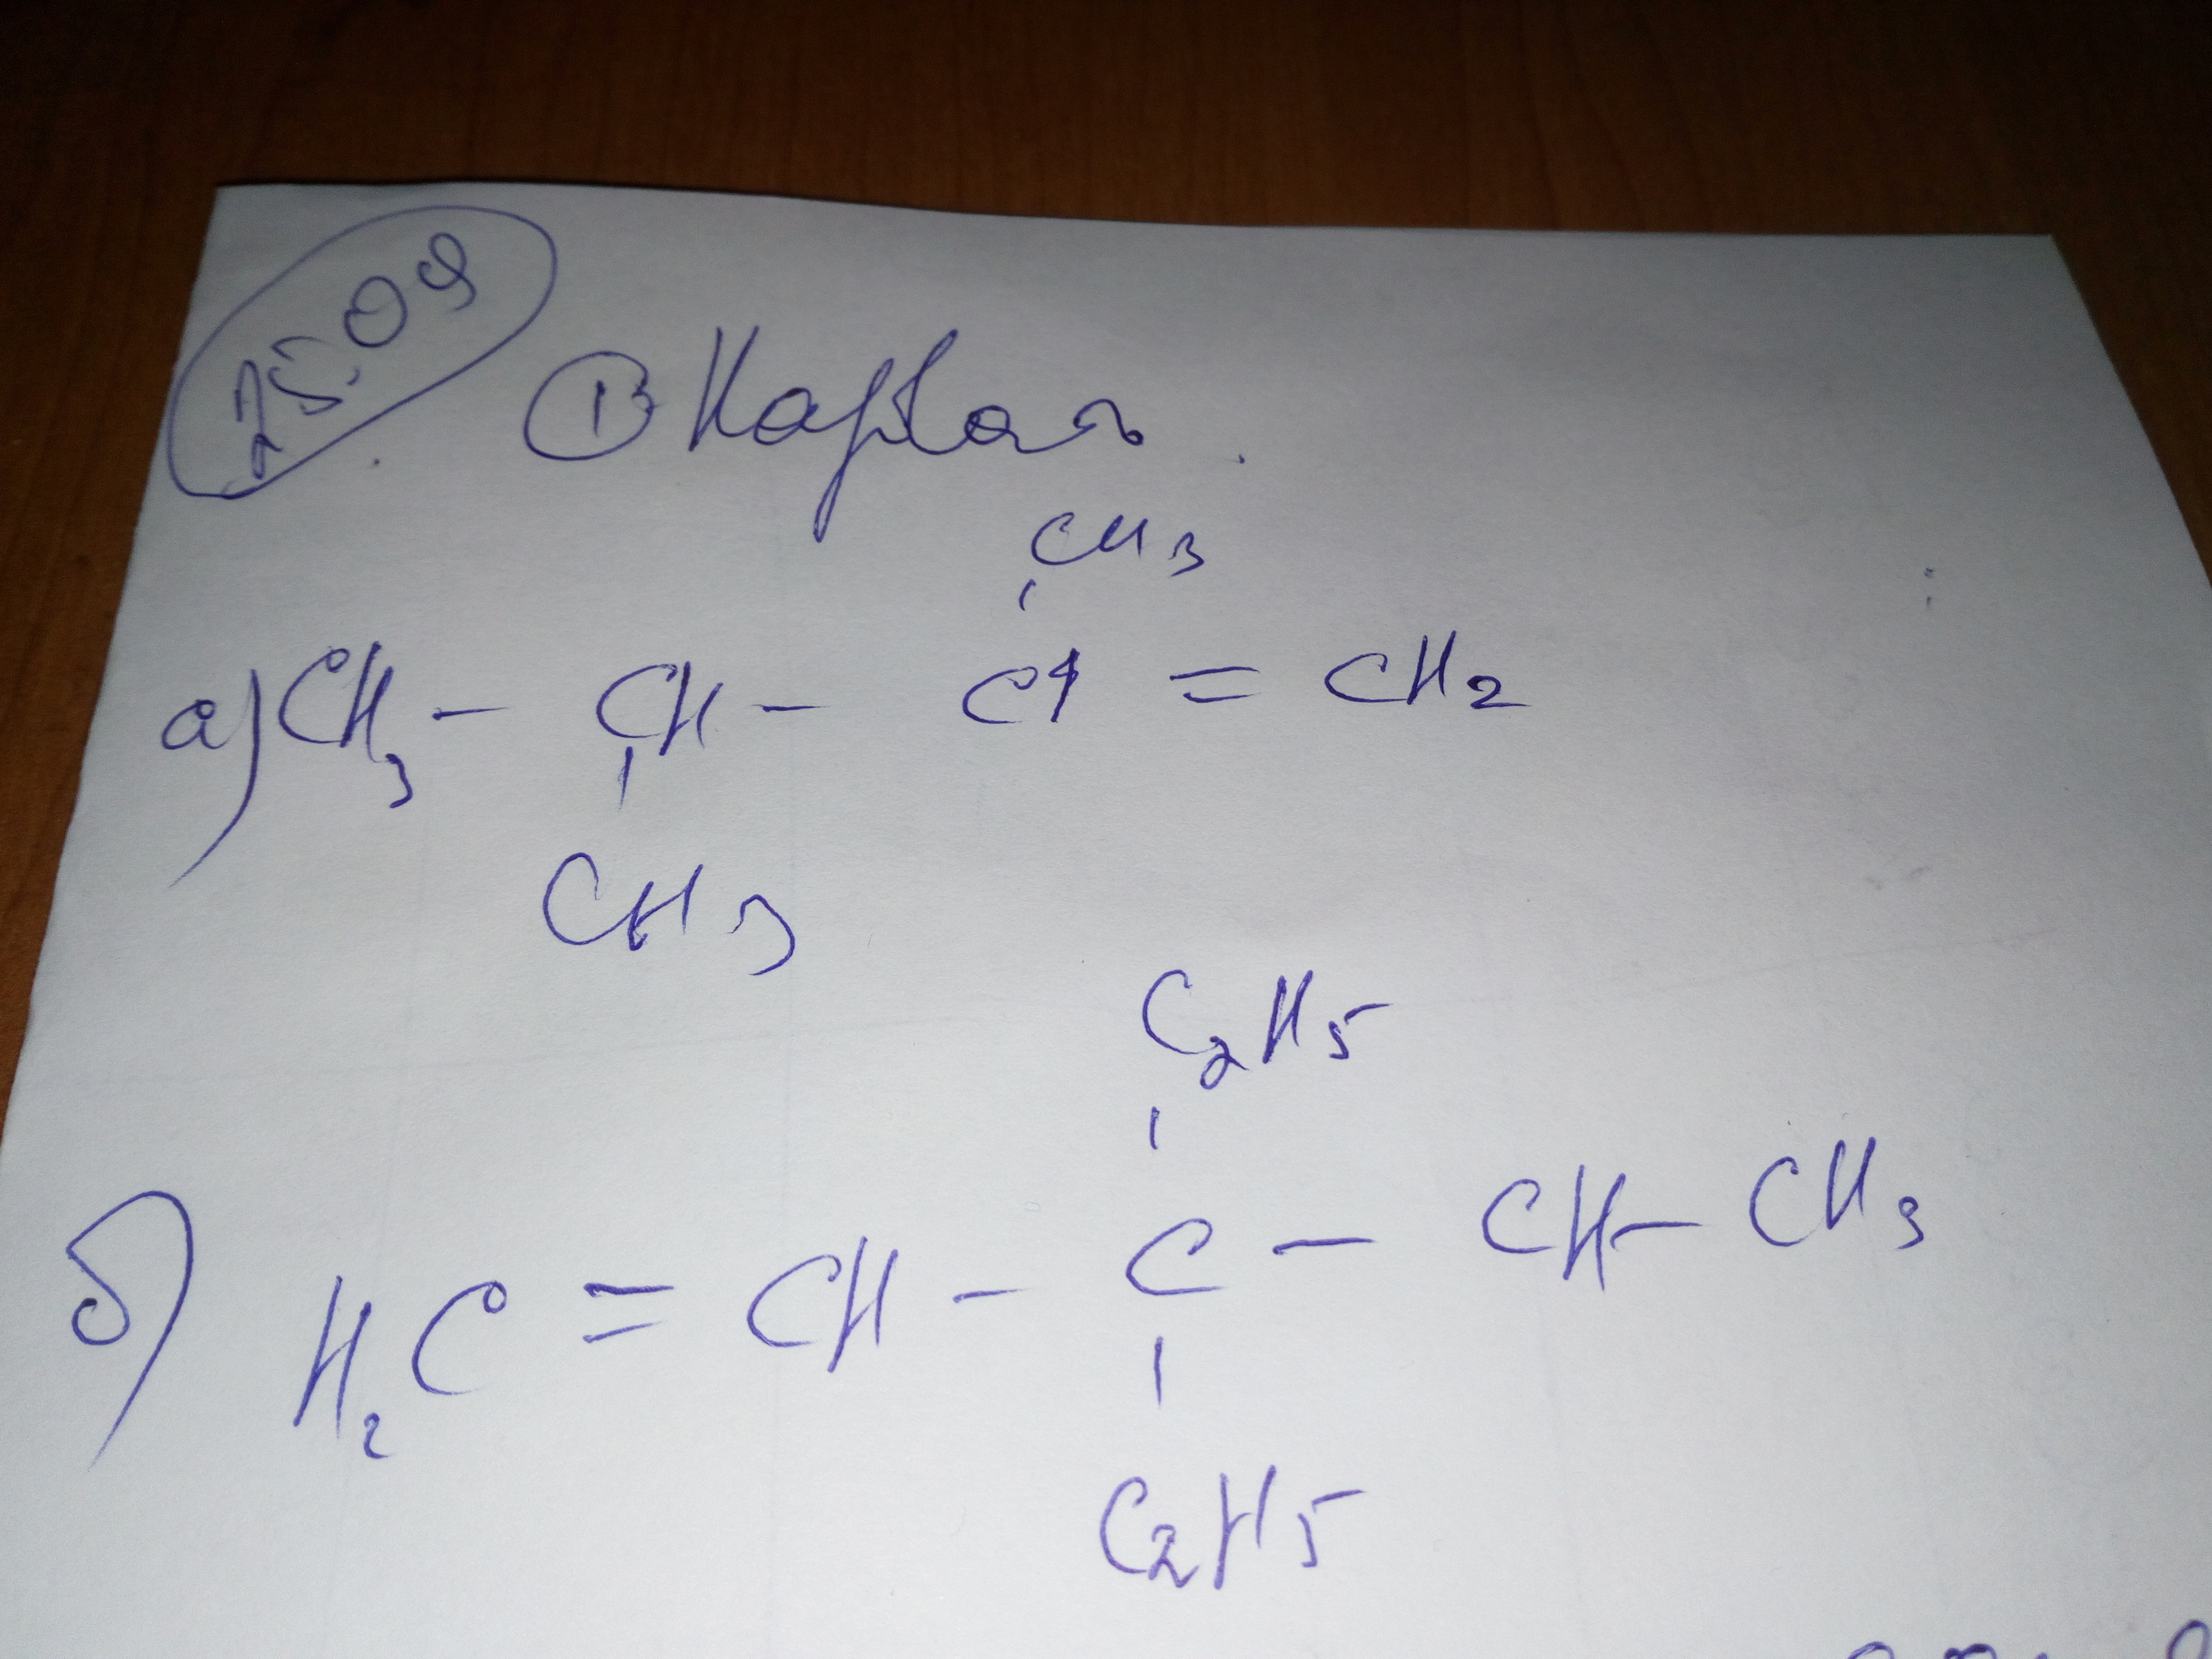 25.09
①
CH3
а) CH3 - CH - C = CH2
CH3
C2H5
б) H2C = CH - C - CH - CH3
C2H5